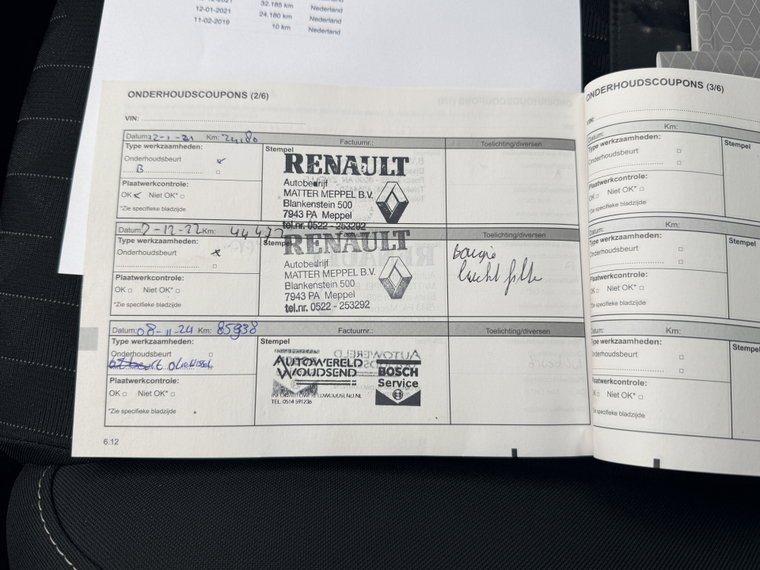 12-01-2021 24.180 km Nederland
32.185 km Nederland
11-02-2019 10 km Nederland
ONDERHOUDSCOUPONS (2/6)
VIN:
Datum: 12-1-21 Km: 24180 Factuurnr.: Toelichting/diversen
Type werkzaamheden: Stempel
Onderhoudsbeurt
B
Plaatwerkcontrole:
OK Niet OK*
*Zie specifieke bladzijde
RENAULT
Autobedrijf
MATTER MEPPEL B.V.
Blankenstein 500
7943 PA Meppel
tel.nr. 0522 - 253292
Datum: 7-12-22 Km: Toelichting/diversen
Type werkzaamheden: Stempel
Onderhoudsbeurt
Plaatwerkcontrole:
OK Niet OK*
*Zie specifieke bladzijde
RENAULT
Autobedrijf
MATTER MEPPEL B.V.
Blankenstein 500
7943 PA Meppel
tel.nr. 0522 - 253292
bougie
lucht filter
Datum: 08-11-24 Km: 85938 Factuurnr.: Toelichting/diversen
Type werkzaamheden: Stempel
Onderhoudsbeurt
Plaatwerkcontrole:
OK Niet OK*
*Zie specifieke bladzijde
AUTOWERELD
WOUDSEND
TEL. 0514 591236
BOSCH
Service
6.12
ONDERHOUDSCOUPONS (3/6)
VIN:
Datum: Km:
Type werkzaamheden: Stempel
Onderhoudsbeurt
Plaatwerkcontrole:
OK Niet OK*
*Zie specifieke bladzijde
Datum: Km:
Type werkzaamheden: Stempel
Onderhoudsbeurt
Plaatwerkcontrole:
OK Niet OK*
*Zie specifieke bladzijde
Datum: Km:
Type werkzaamheden: Stempel
Onderhoudsbeurt
Plaatwerkcontrole:
OK Niet OK*
*Zie specifieke bladzijde